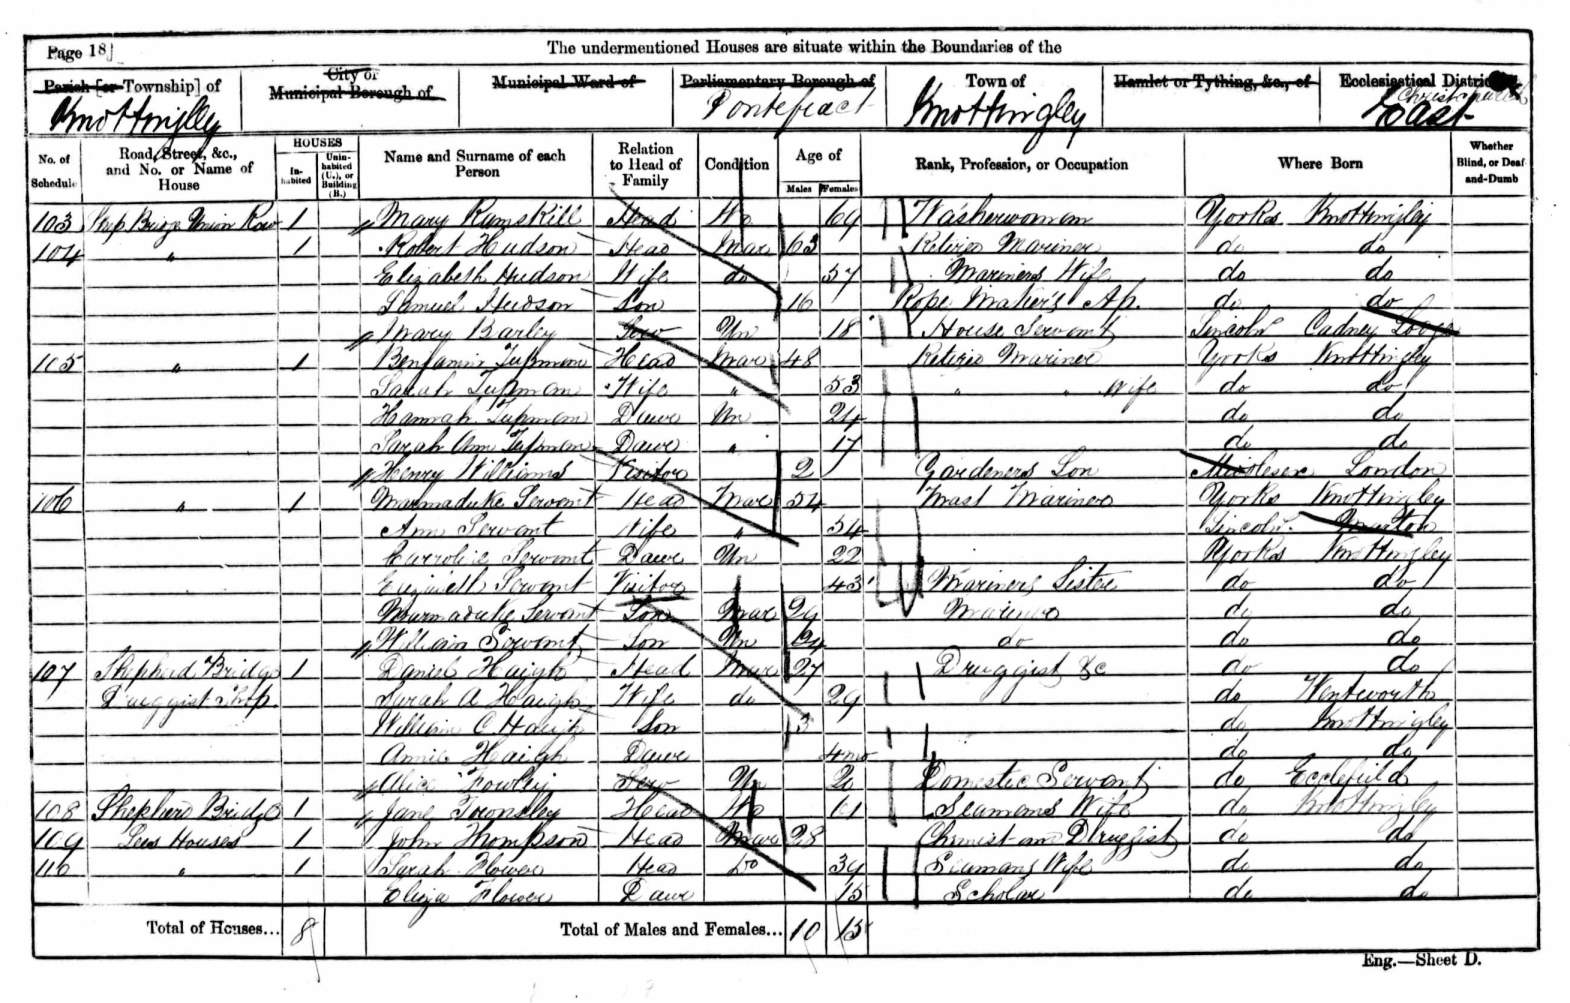 Page 18]
The undermentioned Houses are situate within the Boundaries of the
Parish [or Township] of
City or Municipal Borough of
Municipal Ward of
Parliamentary Borough of
Town of
Hamlet or Tything, &c., of
Ecclesiastical District of
Knottingley
Pontefract
Knottingley
Christ Church
East
No. of Schedule
Road, Street, &c., and No. or Name of House
HOUSES
Inhabited
Uninhabited (U.), or Building (B.)
Name and Surname of each Person
Relation to Head of Family
Condition
Age of
Males
Females
Rank, Profession, or Occupation
Where Born
Whether Blind, or Deaf-and-Dumb
103 Shep Bridge Union Row 1 Mary Ramskill Head Wo 69 Washerwoman Yorks Knottingley
104 " 1 Robert Hudson Head Mar 63 Retired Mariner do do
Elizabeth Hudson Wife do 57 Mariners Wife do do
Samuel Hudson Son 16 Rope Maker's Ap. do do
Mary Barley Serv Un 18 House Servant Lincoln Cadney
105 " 1 Benjamin Tupman Head Mar 48 Retired Mariner Yorks Knottingley
Sarah Tupman Wife " 53 " " Wife do do
Hannah Tupman Daur Un 24 do do
Sarah Ann Tupman Daur " 17 do do
Henry Williams Visitor 2 Gardeners Son Middlesex London
106 " 1 Marmaduke Servant Head Mar 54 Mast Mariner Yorks Knottingley
Ann Servant Wife " 54 Lincoln Marton
Carroline Servant Daur Un 22 Yorks Knottingley
Elizabeth Servant Visitor 43 Mariners Sister do do
Marmaduke Servant Son Mar 29 Mariner do do
William Servant Son Un 24 do do do
107 Shepherd Bridge 1 Daniel Haigh Head Mar 27 Druggist &c do do
Druggist Shop Sarah A Haigh Wife do 29 do Wentworth
William C Haigh Son 3 do Knottingley
Annie Haigh Daur 4 mo do do
Alice Serv Un 20 Domestic Servant do Ecclefield
108 Shepherd Bridge 1 Jane Townsley Head 61 Seamans Wife do Knottingley
109 Lees Houses 1 John Thompson Head Mar 28 Chemist and Druggist do do
110 " 1 Sarah Flower Head do 39 Seamans Wife do do
Eliza Flower Daur 15 Scholar do do
Total of Houses... 8
Total of Males and Females... 10 15
Eng.—Sheet D.